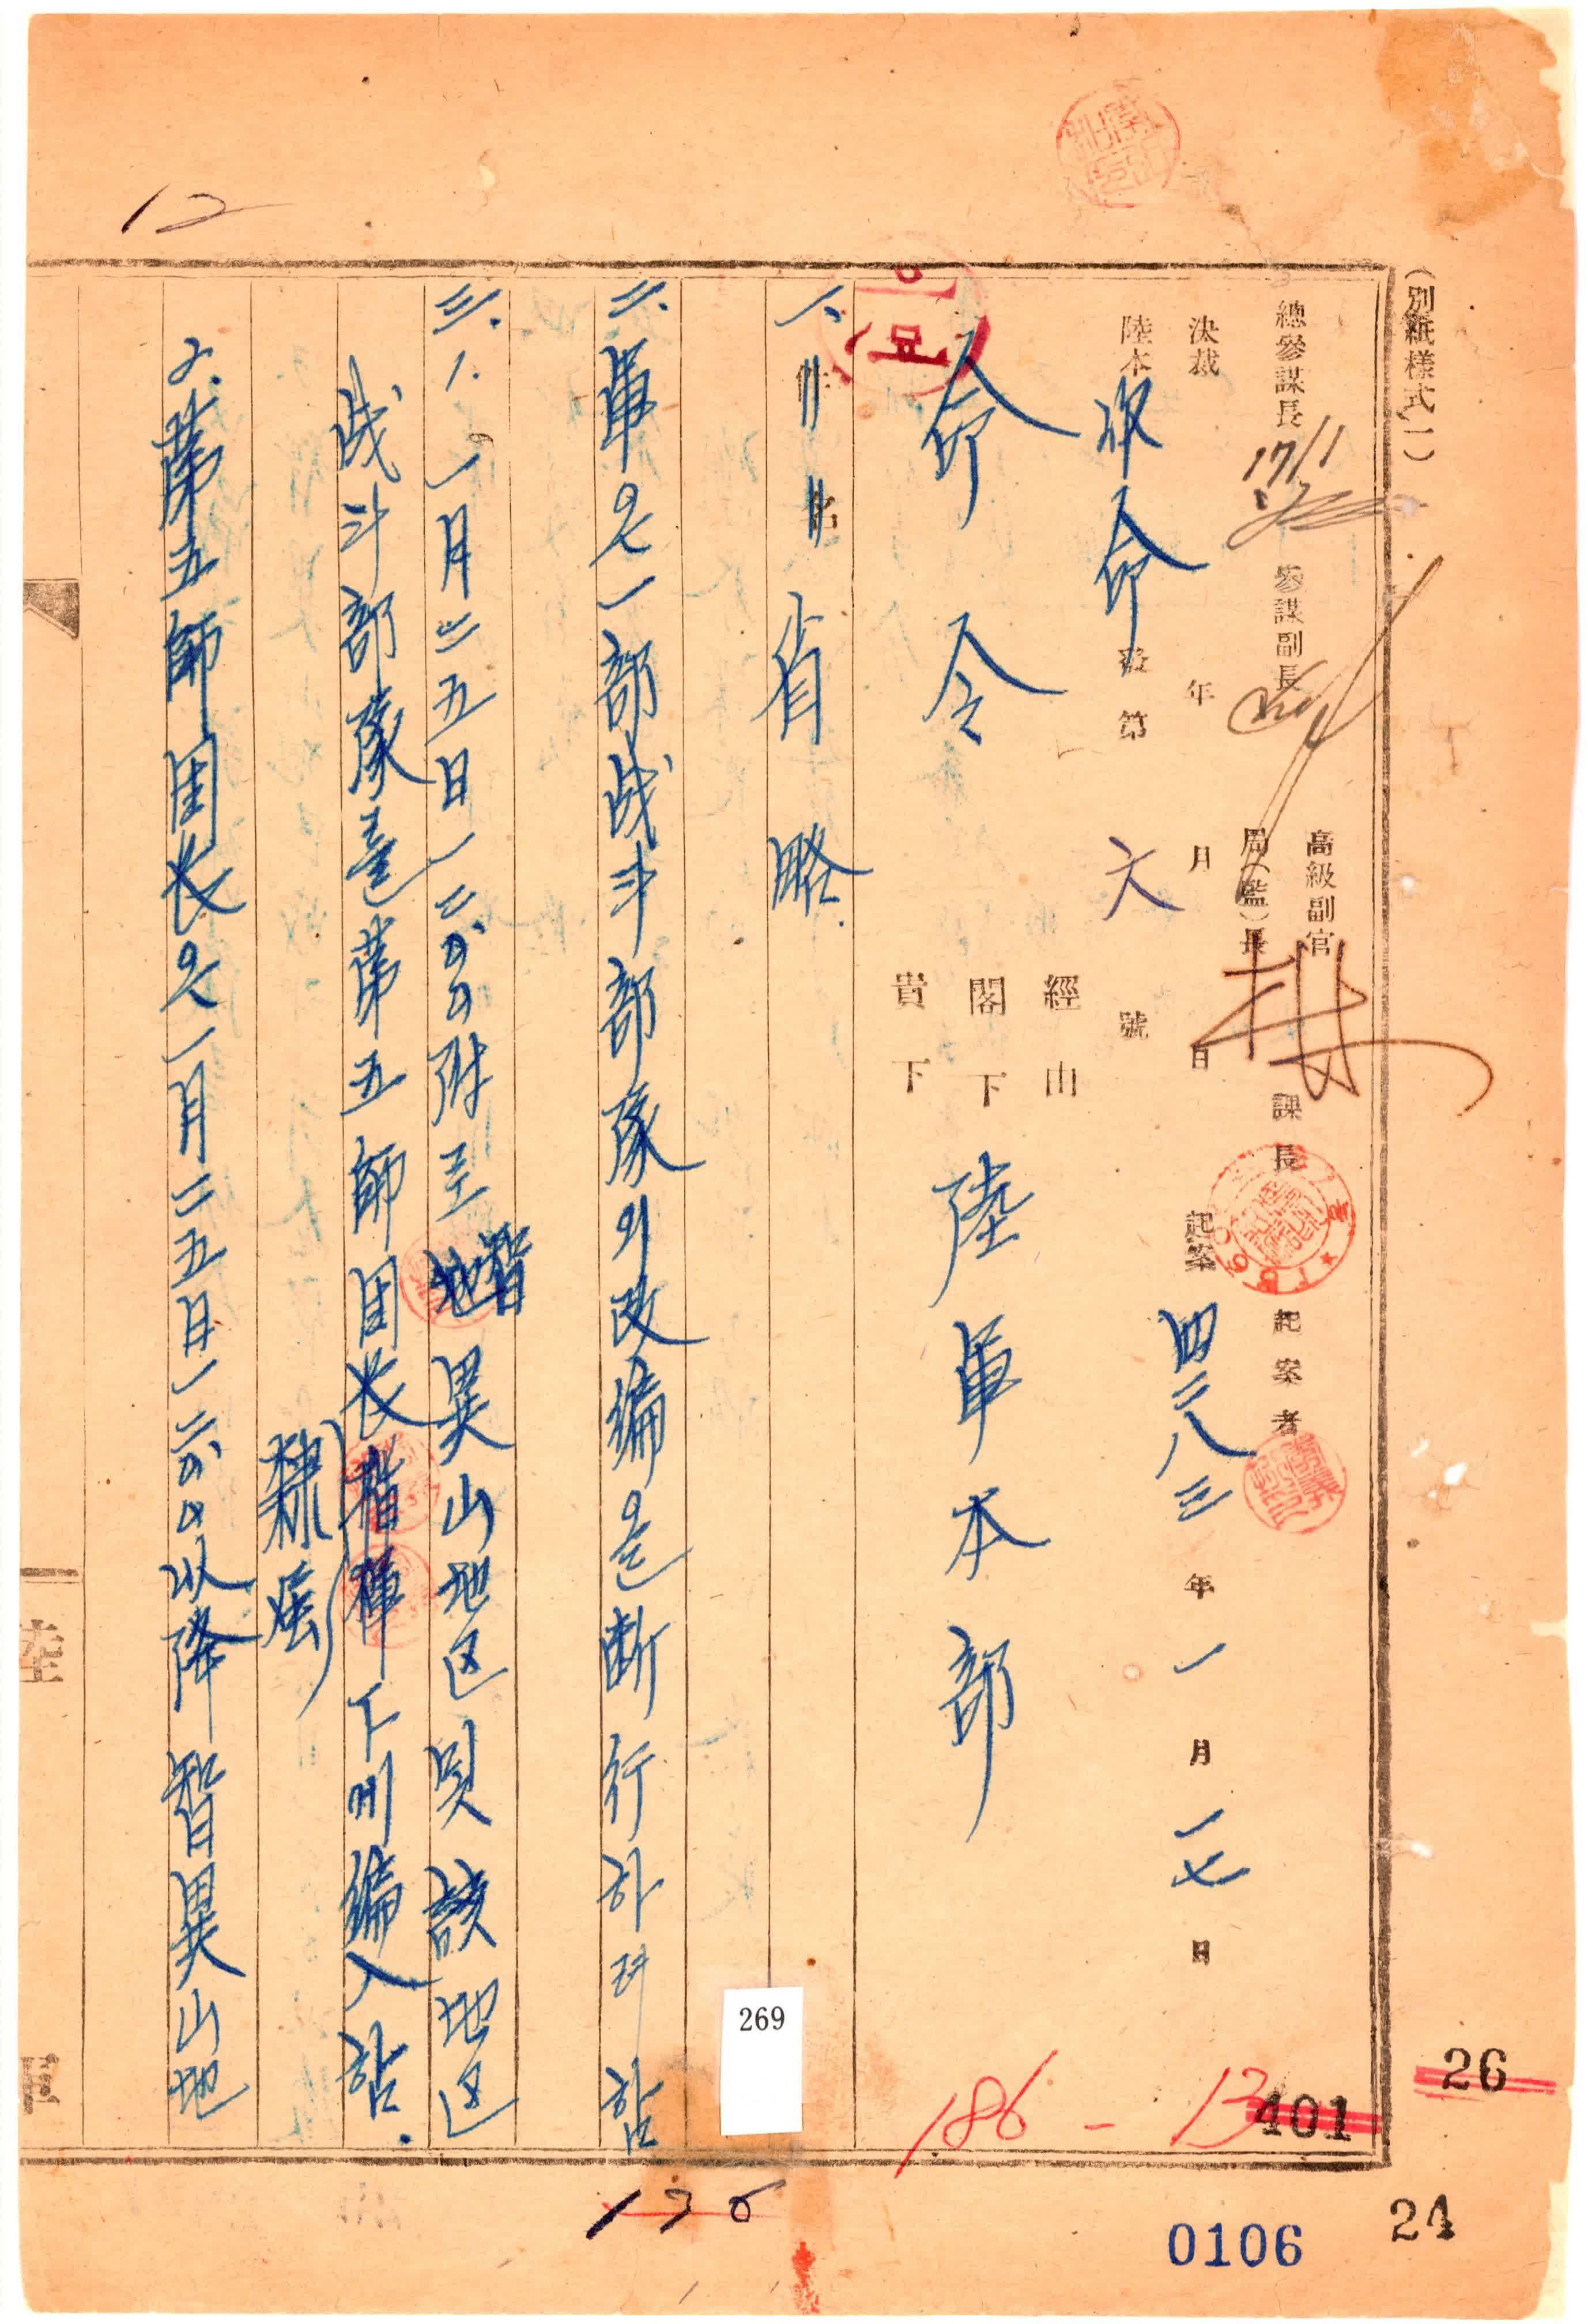 (別紙樣式一)
總參謀長 17/1 參謀副長 高級副官 局(監)長 課長 起案者
決裁 年 月 日 起案 四二八三年 一月 一七日
陸本 作命 發第 六 號
命令
經由
閣下 陸軍本部
貴下
一、件名 省略.
二、軍은 一部战斗部隊의 改編을 断行하려 함
三. 1. 一月二五日一二、00附로 智異山地区 및 該地区
战斗部隊를 第五師団长 指揮下에 編入함.
隷屬
2. 第五師団长은 一月二五日一二、00以降 智異山地
12
269
186 - 13
401
26
176
0106
24
陸